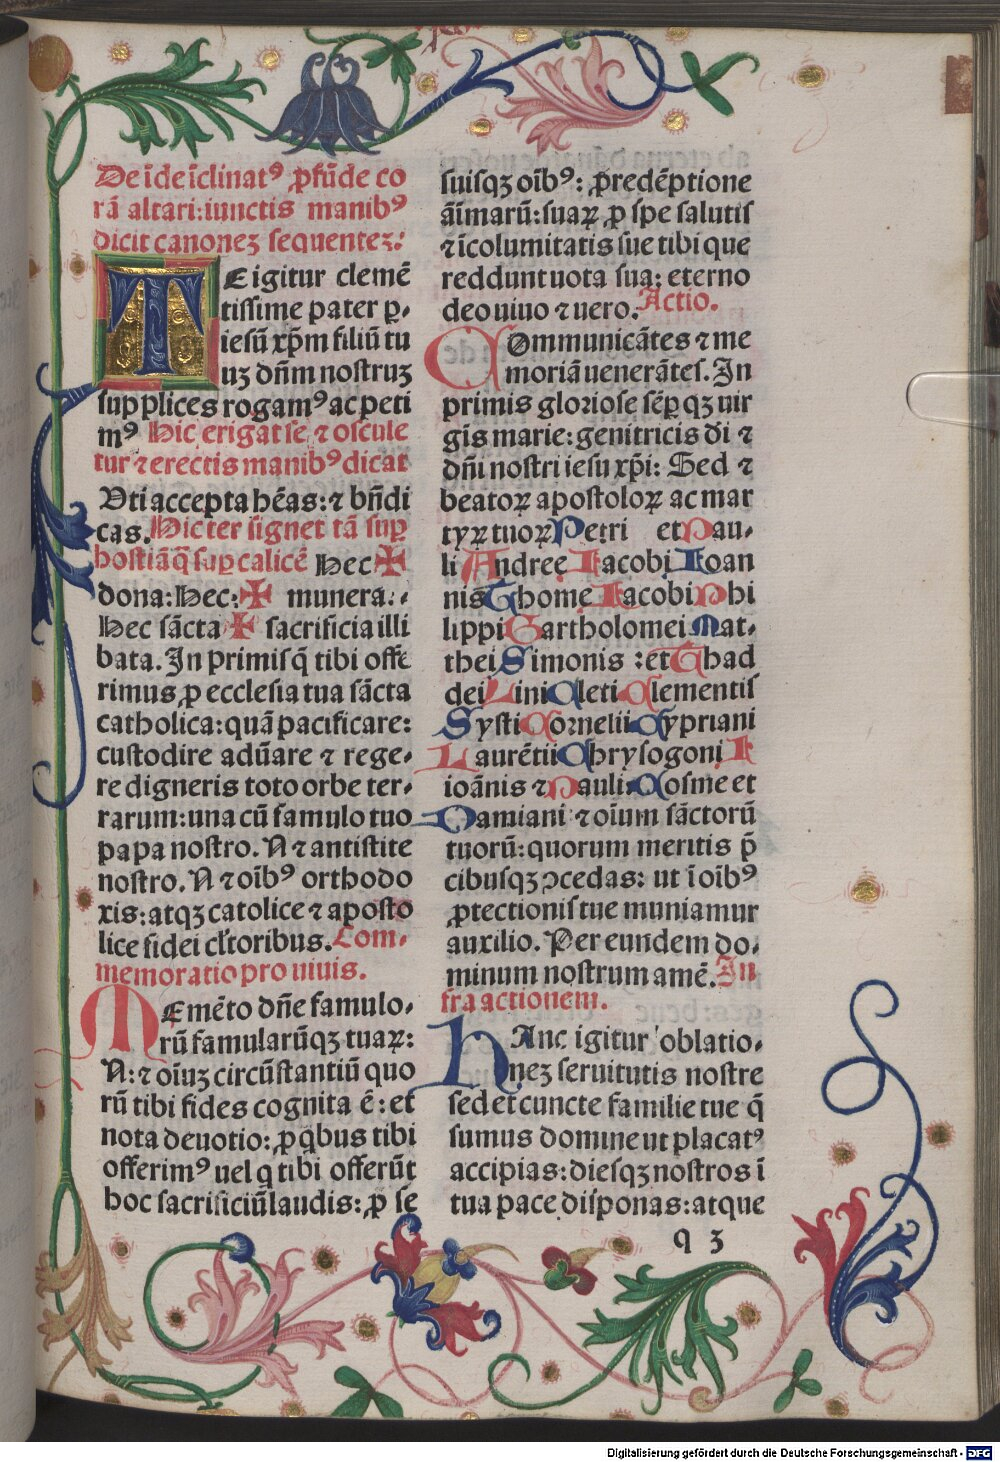 De ī de īclinatꝰ ꝓfūde co
rā altari: iunctis manibꝰ
dicit canoneʒ sequenteʒ:
TE igitur clemē
tissime pater ꝑ.
iesū xp̄m filiū tu
uʒ dn̄m nostruʒ
supplices rogamꝰ ac peti
mꝰ Hic erigat se ⁊ oscule
tur ⁊ erectis manibꝰ dicat
Vti accepta hēas: ⁊ bn̄di
cas. Hic ter signet tā suꝑ
hostiā q̄ suꝑ calicē Hec ✠
dona: Hec: ✠ munera:
Hec sācta ✠ sacrificia illi
bata. In primis q̄ tibi offe
rimus ꝓ ecclesia tua sācta
catholica: quā pacificare:
custodire adūare ⁊ rege-
re digneris toto orbe ter-
rarum: una cū famulo tuo
papa nostro. N ⁊ antistite
nostro. N ⁊ oībꝰ orthodo
xis: atqʒ catolice ⁊ aposto
lice fidei cl̄toribus. Com-
memoratio pro uiuis.
MEmēto dn̄e famulo-
rū famularūqʒ tuaꝝ:
N: ⁊ oīuʒ circūstantiū quo
rū tibi fides cognita ē: et
nota deuotio: ꝓ q̄bus tibi
offerimꝰ uel q̄ tibi offerūt
hoc sacrificiū laudis: ꝓ se
suisqʒ oībꝰ: ꝓ redēptione
aīmarū: suaꝝ ꝓ spe salutis
⁊ īcolumitatis sue tibi que
reddunt uota sua: eterno
deo uiuo ⁊ uero. Actio.
COmmunicātes ⁊ me
moriā uenerātes. In
primis gloriose sēꝑqʒ uir
gīs marie: genitricis di ⁊
dn̄i nostri iesu xp̄i: Sed ⁊
beatoꝝ apostoloꝝ ac mar
tyꝝ tuoꝝ Petri et Pau-
li Andree Iacobi Ioan
nis Thome Iacobi Phi
lippi Bartholomei Mat-
thei Simonis : et Thad
dei Lini Cleti Clementis
Systi Cornelii Cypriani
Laurētii Chrysogoni I
ioānis ⁊ Pauli Cosme et
Damiani ⁊ oīum sāctorū
tuorū: quorum meritis p̄
cibusqʒ ↄcedas: ut ī oībꝰ
ꝓtectionis tue muniamur
auxilio. Per eundem do-
minum nostrum amē. In
fra actionem.
HAnc igitur oblatio-
neʒ seruitutis nostre
sed et cuncte familie tue q̄
sumus domine ut placatꝰ
accipias: diesqʒ nostros ī
tua pace disponas: atque
q 3
Digitalisierung gefördert durch die Deutsche Forschungsgemeinschaft - DFG